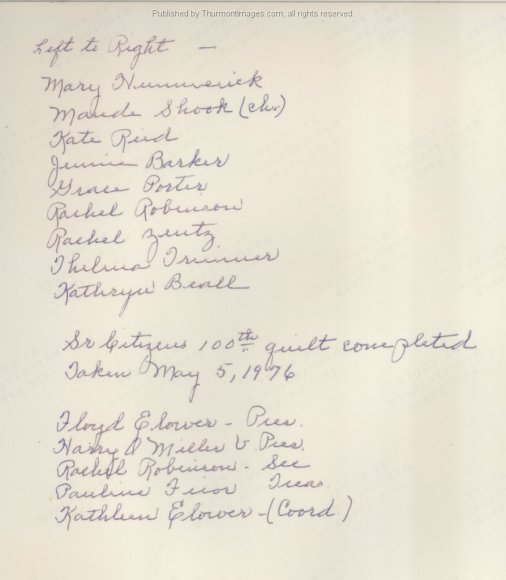 Published by ThurmontImages.com, all rights reserved.
Left to Right —
Mary Hummerick
Maude Shook (ch.)
Kate Reid
Jennie Barker
Grace Porter
Rachel Robinson
Rachel Zentz
Thelma Trimmer
Kathryn Beall
Sr Citizens 100th quilt completed
Taken May 5, 1976
Floyd Elower - Pres.
Harry D Miller V. Pres.
Rachel Robinson - Sec
Pauline Treas
Kathleen Elower - (Coord.)